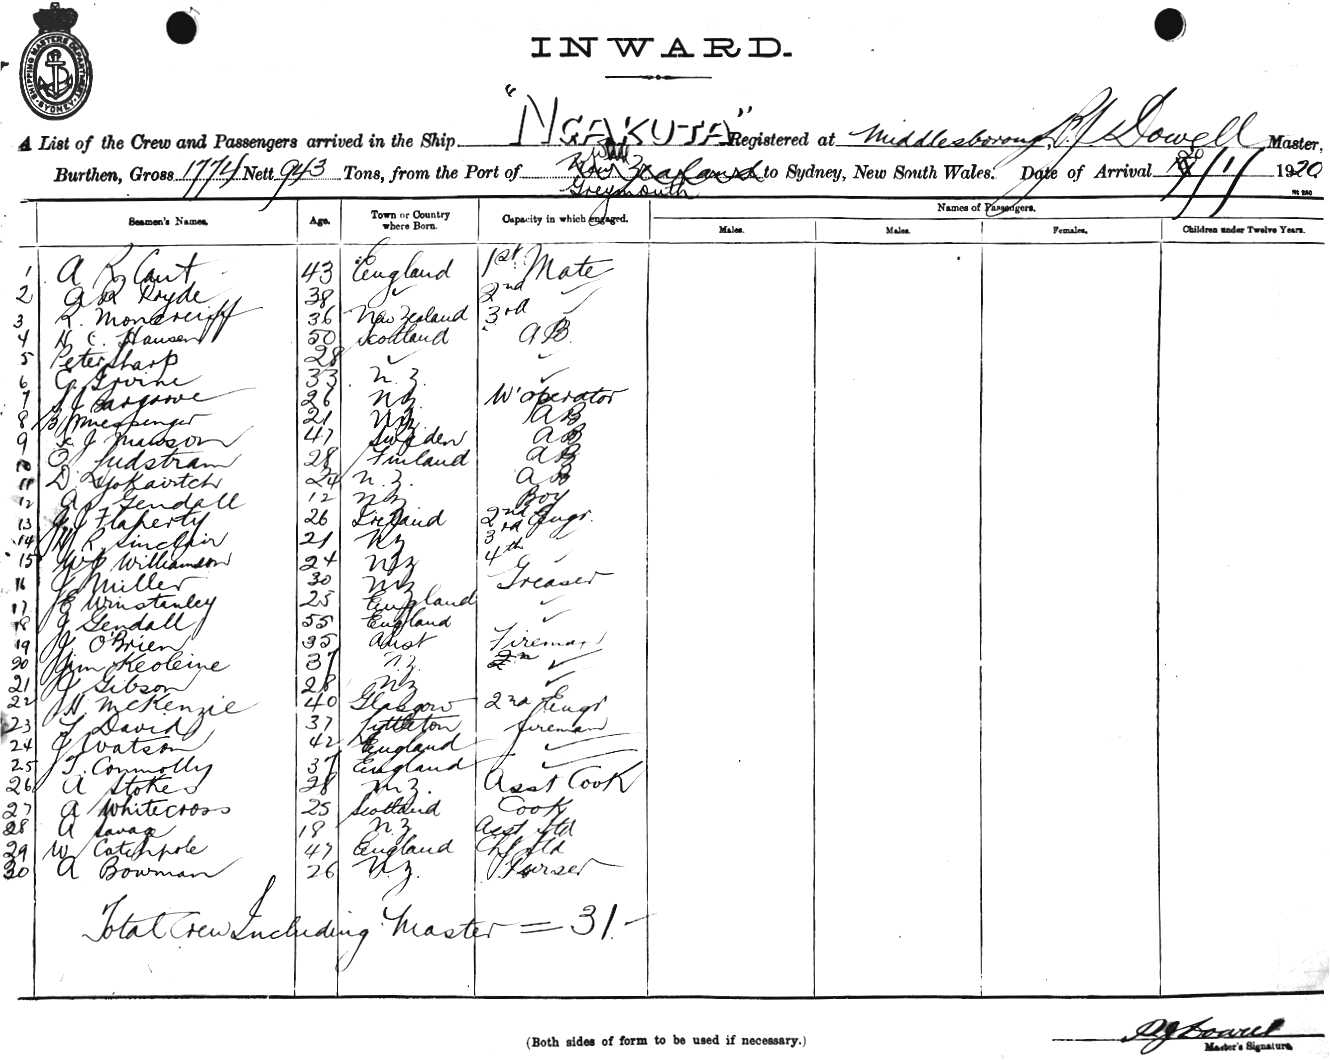 SHIPPING MASTERS DEPARTMENT SYDNEY
INWARD.
A List of the Crew and Passengers arrived in the Ship "NGAKUTA" Registered at Middlesborough, Dowell Master,
Burthen, Gross 1774 Nett 943 Tons, from the Port of Greymouth to Sydney, New South Wales. Date of Arrival 20/1/1920
Seamen's Names. Age. Town or Country where Born. Capacity in which engaged. Names of Passengers.
Males. Males. Females. Children under Twelve Years.
1 A R Cant 43 England 1st Mate
2 A R Pryde 38 ✓ 2nd ✓
3 R. Moncreiff 36 New Zealand 3rd ✓
4 H C. Hansen 50 Scotland A B.
5 Peter Sharp 28 ✓ ✓
6 C. Irvine 33 N.Z. ✓
7 Bargrove 26 NZ W' operator
8 B Messenger 21 NZ A B
9 J Mawson 47 Sweden A B
10 O Judstram 28 Finland A B
11 D. 24 N.Z. A B
12 A Gendall 12 NZ Boy
13 J Flaherty 26 Ireland 2nd Engr.
14 H R Sinclair 21 NZ 3rd ✓
15 W J Williamson 24 NZ 4th ✓
16 J Miller 30 NZ Greaser
17 E Winstanley 25 England ✓
18 J Gendall 55 England ✓
19 J O'Brien 35 Aust Fireman
20 Wm Keoleine 37 N.Z. ✓
21 J Gibson 28 NZ ✓
22 H McKenzie 40 Glasgow 2nd Engr
23 T David 37 Lyttleton fireman
24 J Watson 42 England ✓
25 T. Connolly 37 England ✓
26 A Stokes 28 N.Z. Asst Cook
27 A Whitecross 25 Scotland Cook
28 A Savage 18 N.Z. Asst Std
29 W Catchpole 47 England Chf Std
30 A Bowman 26 N.Z. Purser
Total Crew Including Master = 31.
(Both sides of form to be used if necessary.)
Dowell
Master's Signature.